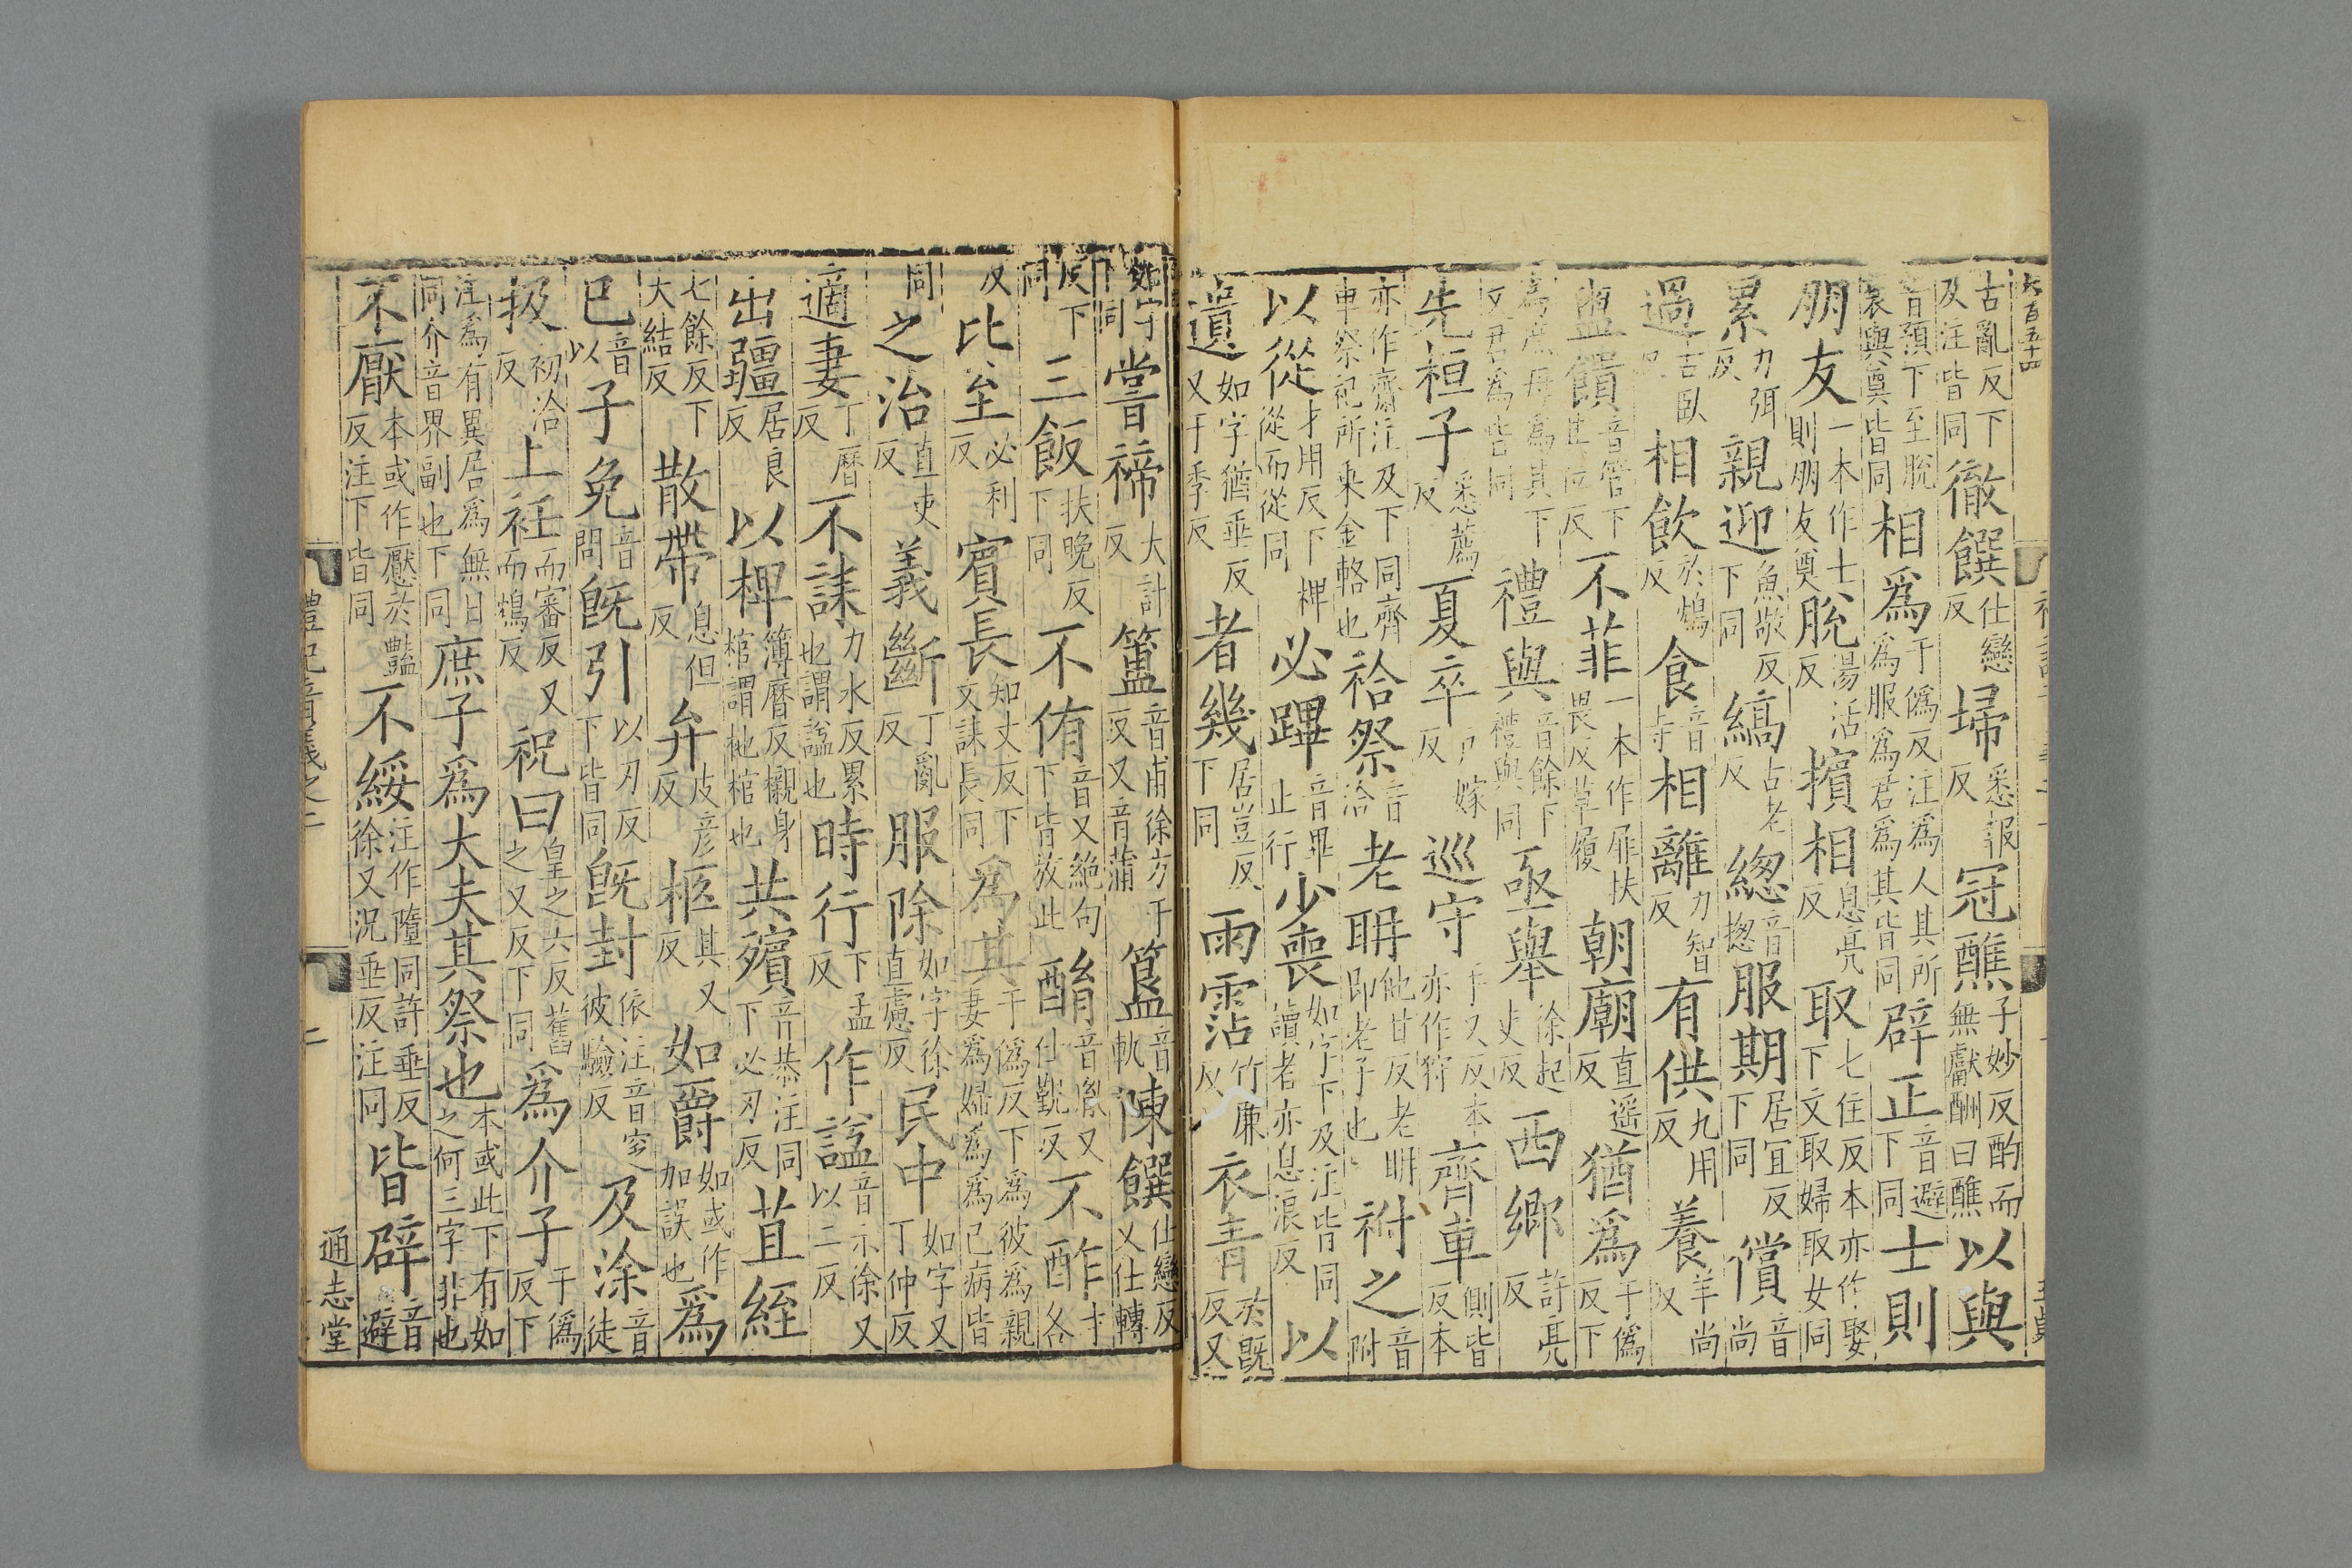 古亂反下及注皆同徹饌仕戀反埽悉報反冠醮子妙反酌而無獻酬曰醮以與
音預下至脫衰與奠皆同相爲于僞反注爲人其所爲服爲君爲其皆同辟正音避下同士則
朋友一本作士則朋友奠脫湯活反擯相息亮反取七住反本亦作娶下文取婦取女同
累力弭反親迎魚敬反下同縞古老反緫音揔服期居宜反下同償音尚
過古臥反相飲於鴆反食音寺相離力智反有供九用反養羊尚反
盥饋音管下其位反不菲一本作扉扶畏反草屨朝廟直遥反猶爲于僞反下
爲庶母爲其下文君爲皆同禮與音餘下禮與同亟舉徐起吏反西鄉許亮反
先桓子悉薦反夏卒戶嫁反巡守手又反本亦作狩齊車側皆反本
亦作齋注及下同齊車祭祀所乘金輅也祫祭音洽老聃他甘反老聃即老子也祔之音附
以從才用反下椑從而從同必蹕音畢止行少喪如字下及注皆同讀者亦息浪反以
遺如字猶垂反又于季反者幾居豈反下同雨霑竹廉反衣青於既反又
如字下同嘗禘大計反簠音甫徐方于反又音蒲簋音軌陳饌仕戀反又仕轉
反下同三飯扶晚反下同不侑音又絕句下皆放此酳音胤又仕覲反不酢才各
反比至必利反賓長知丈反下文誄長同爲其于僞反下爲彼爲親妻爲婦爲爲己病皆
同之治直吏反義斷丁亂反服除如字徐直慮反民中如字又丁仲反
適妻丁曆反不誄力水反累也謂謚也時行下孟反作謚音示徐又以二反
出疆居良反以椑簿曆反櫬身棺謂杝棺也共殯音恭注同下必刃反苴絰
七餘反下大結反散帶息但反弁皮彥反柩其又反如爵如或作加誤也爲
已音以子免音問既引以刃反下皆同既封依注音窆彼驗反及涂音徒
扱初洽反上衽而審反又而鴆反祝曰皇之六反舊之又反下同爲介子于僞反下
注爲有異居爲無日同介音界副也下同庶子爲大夫其祭也本或此下有如之何三字非也
不厭本或作懕於豔反注下皆同不綏注作隳同許垂反徐又況垂反注同皆辟音避
禮記音義之二 二 通志堂